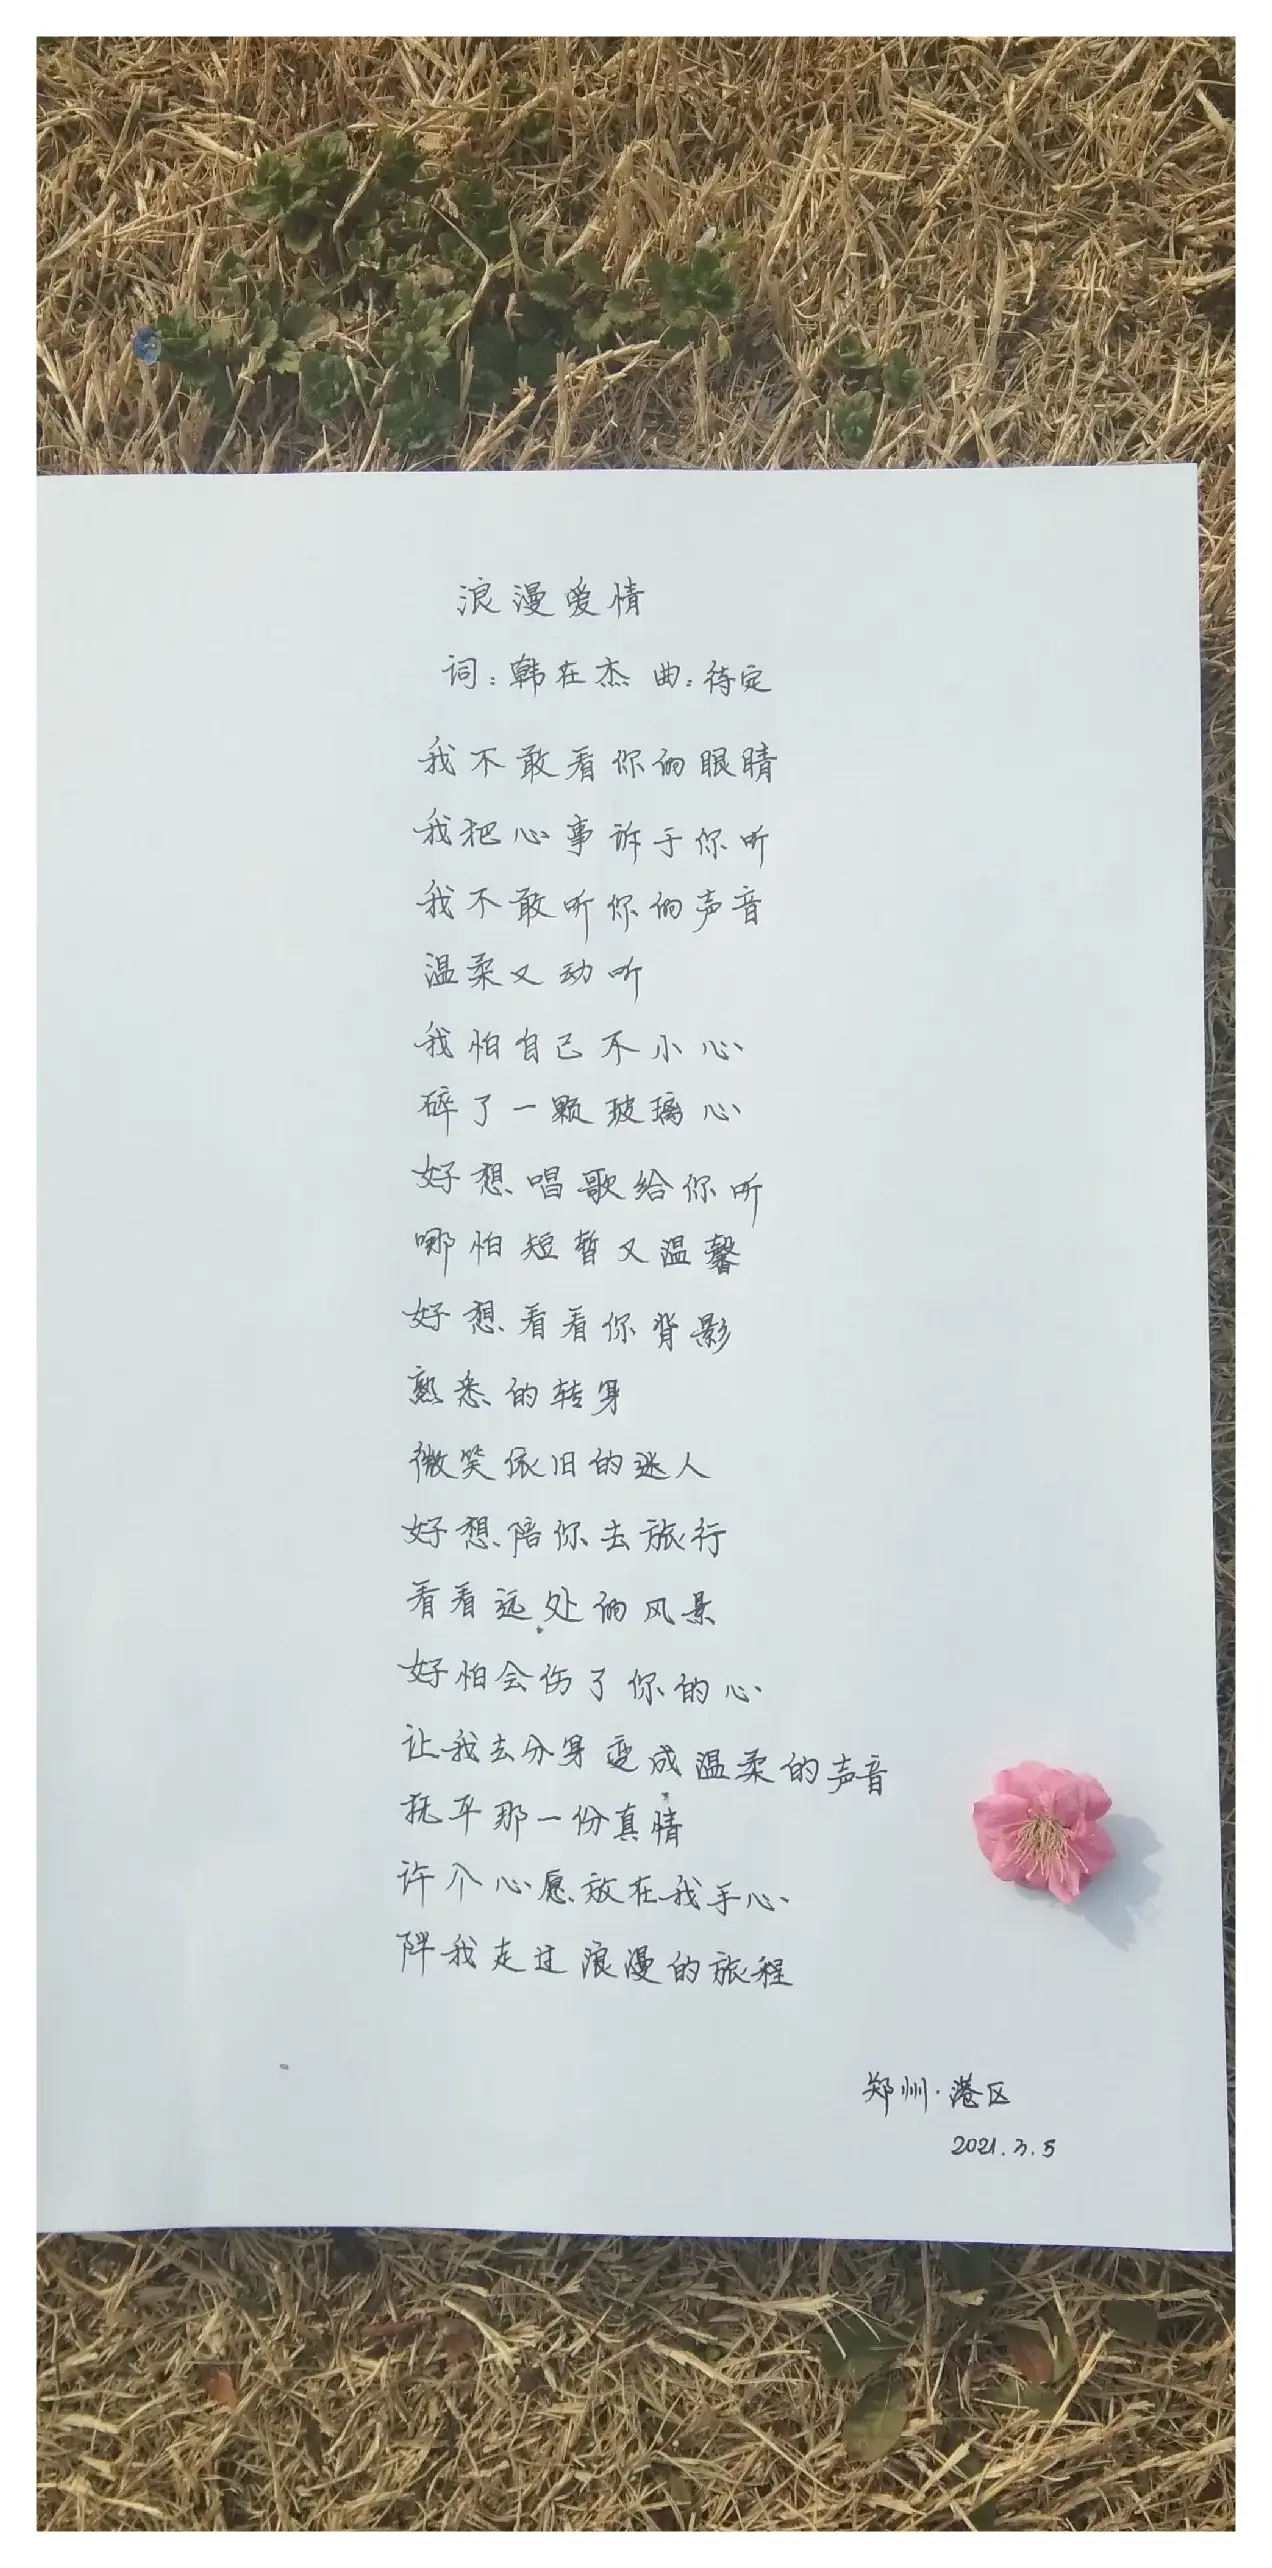 浪漫爱情
词：韩在杰 曲：待定
我不敢看你的眼睛
我把心事诉于你听
我不敢听你的声音
温柔又动听
我怕自己不小心
碎了一颗玻璃心
好想唱歌给你听
哪怕短暂又温馨
好想看看你背影
熟悉的转身
微笑依旧的迷人
好想陪你去旅行
看看远处的风景
好怕会伤了你的心
让我去分身变成温柔的声音
抚平那一份真情
许个心愿放在我手心
陪我走过浪漫的旅程
郑州·港区
2021.3.5